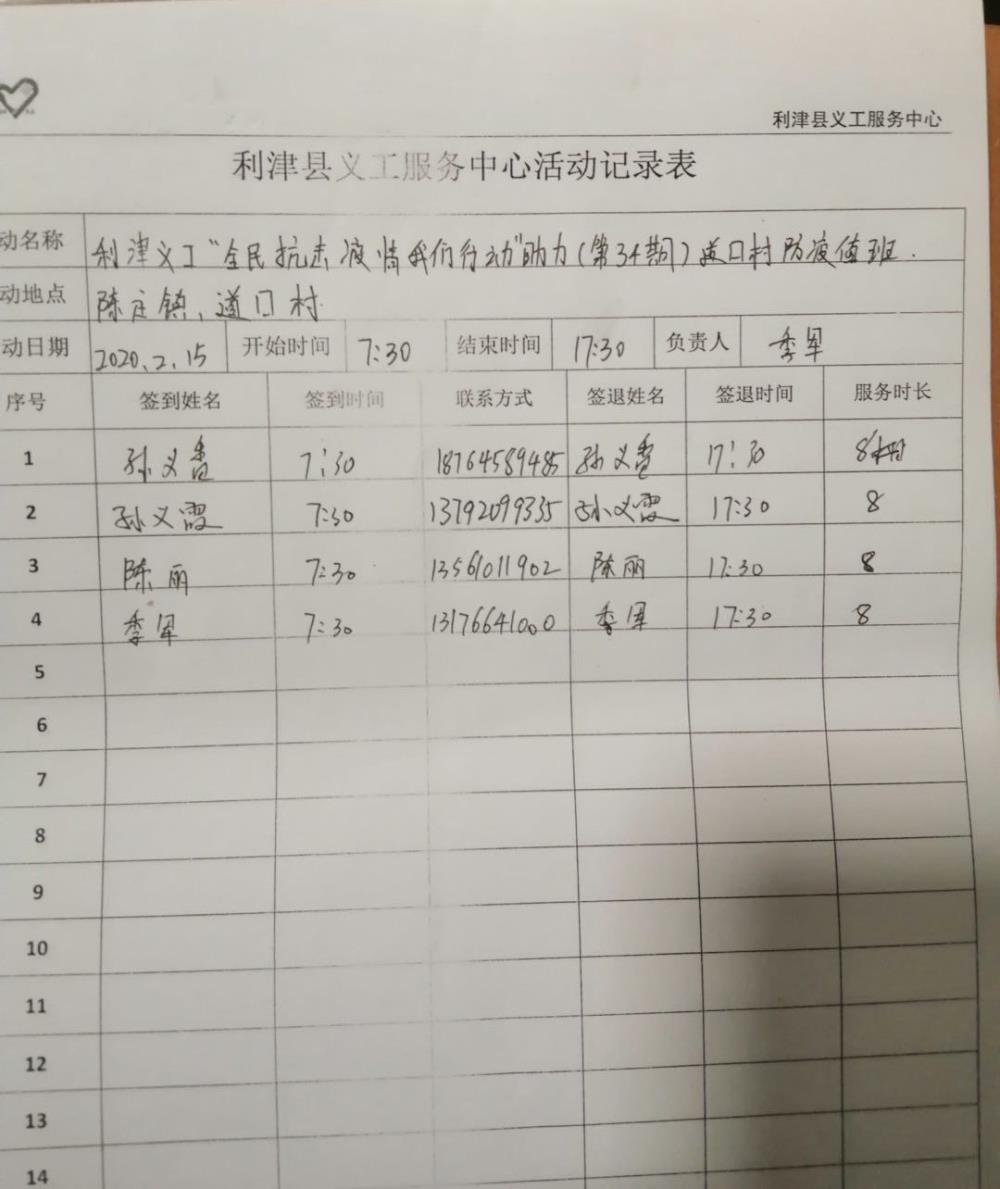 利津县义工服务中心
利津县义工服务中心活动记录表
动名称 利津义工"全民抗击疫情我们行动"助力(第34期)道口村防疫值班.
动地点 陈庄镇、道口村
动日期 2020.2.15 开始时间 7:30 结束时间 17:30 负责人 季军
序号 签到姓名 签到时间 联系方式 签退姓名 签退时间 服务时长
1 孙义香 7:30 18764589485 孙义香 17:30 8
2 孙义霞 7:30 13792099335 孙义霞 17:30 8
3 陈丽 7:30 13561011902 陈丽 17:30 8
4 季军 7:30 13176641000 季军 17:30 8
5
6
7
8
9
10
11
12
13
14